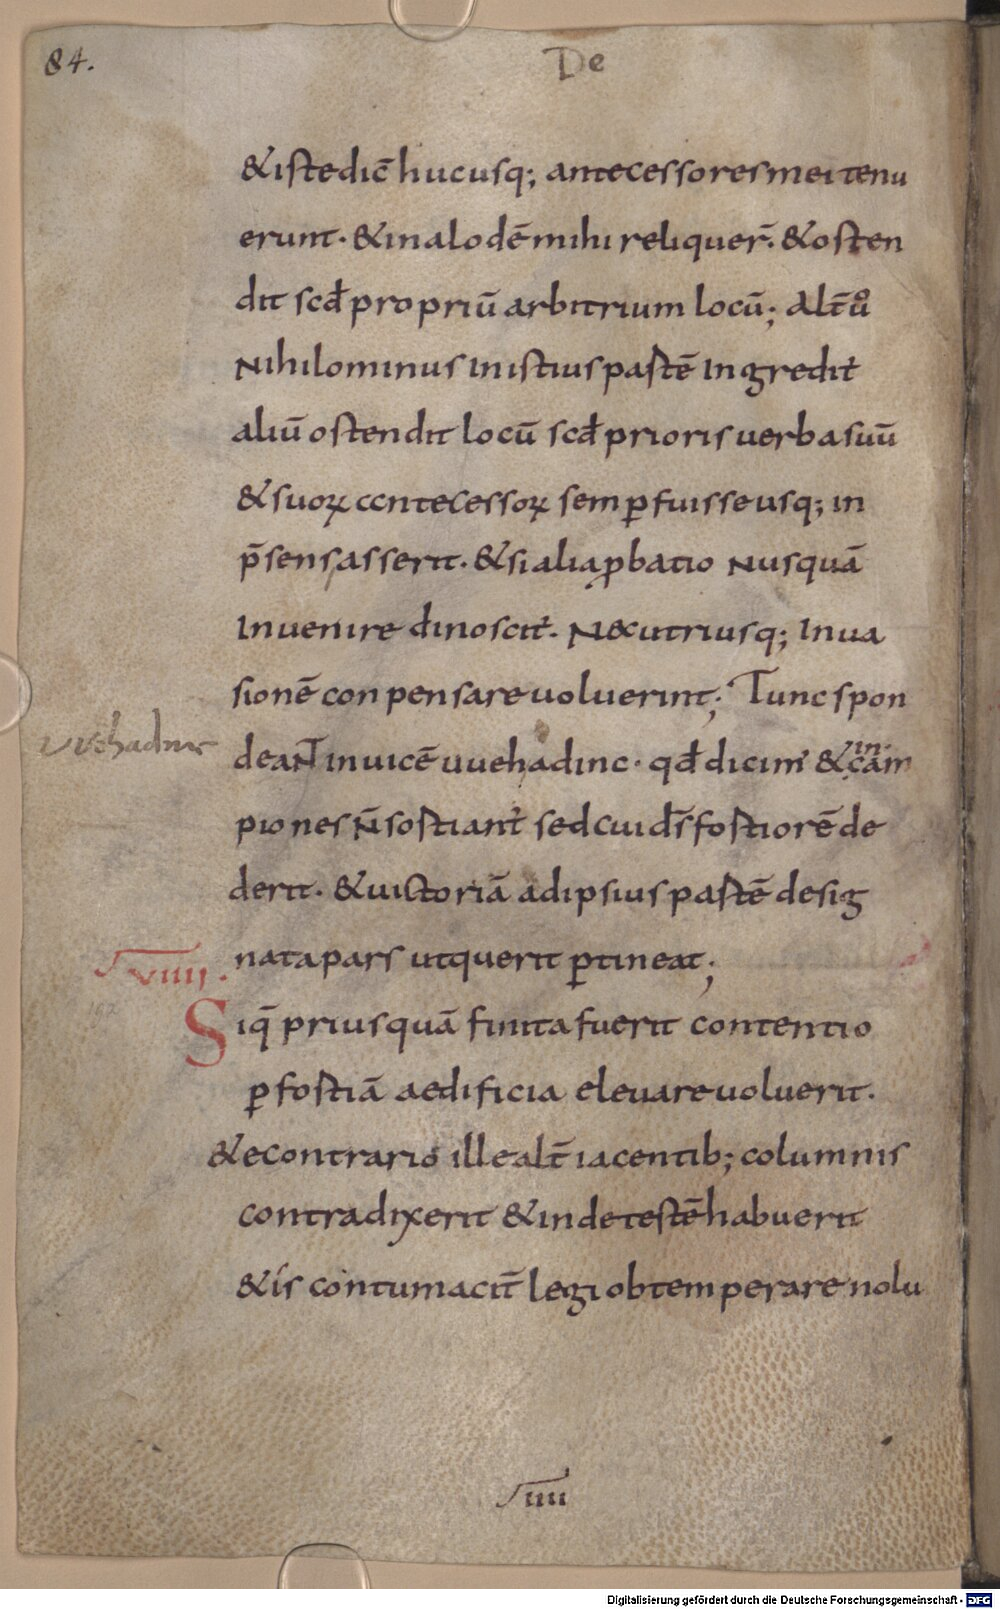 84.
De
&iste dic̄ hucusq; antecessores mei tenu
erunt· & in alodē mihi reliquer̄· & osten
dit scđ propriū arbitrium locū; Alt̄ uº
Nihilominus in istius partē ingredit̉
aliū ostendit locū scđ prioris uerba suū
& suoꝝ antecessoꝝ semꝑ fuisse usq; in
p̄sens asserit· & si alia ꝓbatio nusquā
inuenire dinoscit̉· Nec utriusq; inua
sionē conpensare uoluerint; Tunc spon
deant inuicē uuehadinc· qđ dicim̉ & in cam
uuehadinc
piones n̄ sortiant̉ sed cui dˉs fortiorē de
derit· & uictoriā ad ipsius partē desig
nata pars ut querit ꝑtineat;
XVIIII·
Siq̄ priusquā finita fuerit contentio
ꝑ fortiā aedificia eleuare uoluerit·
& econtrario ille alt̄ iacentib; columnis
contradixerit & inde testē habuerit
& is contumacit̄ legi obtemperare nolu
IIII